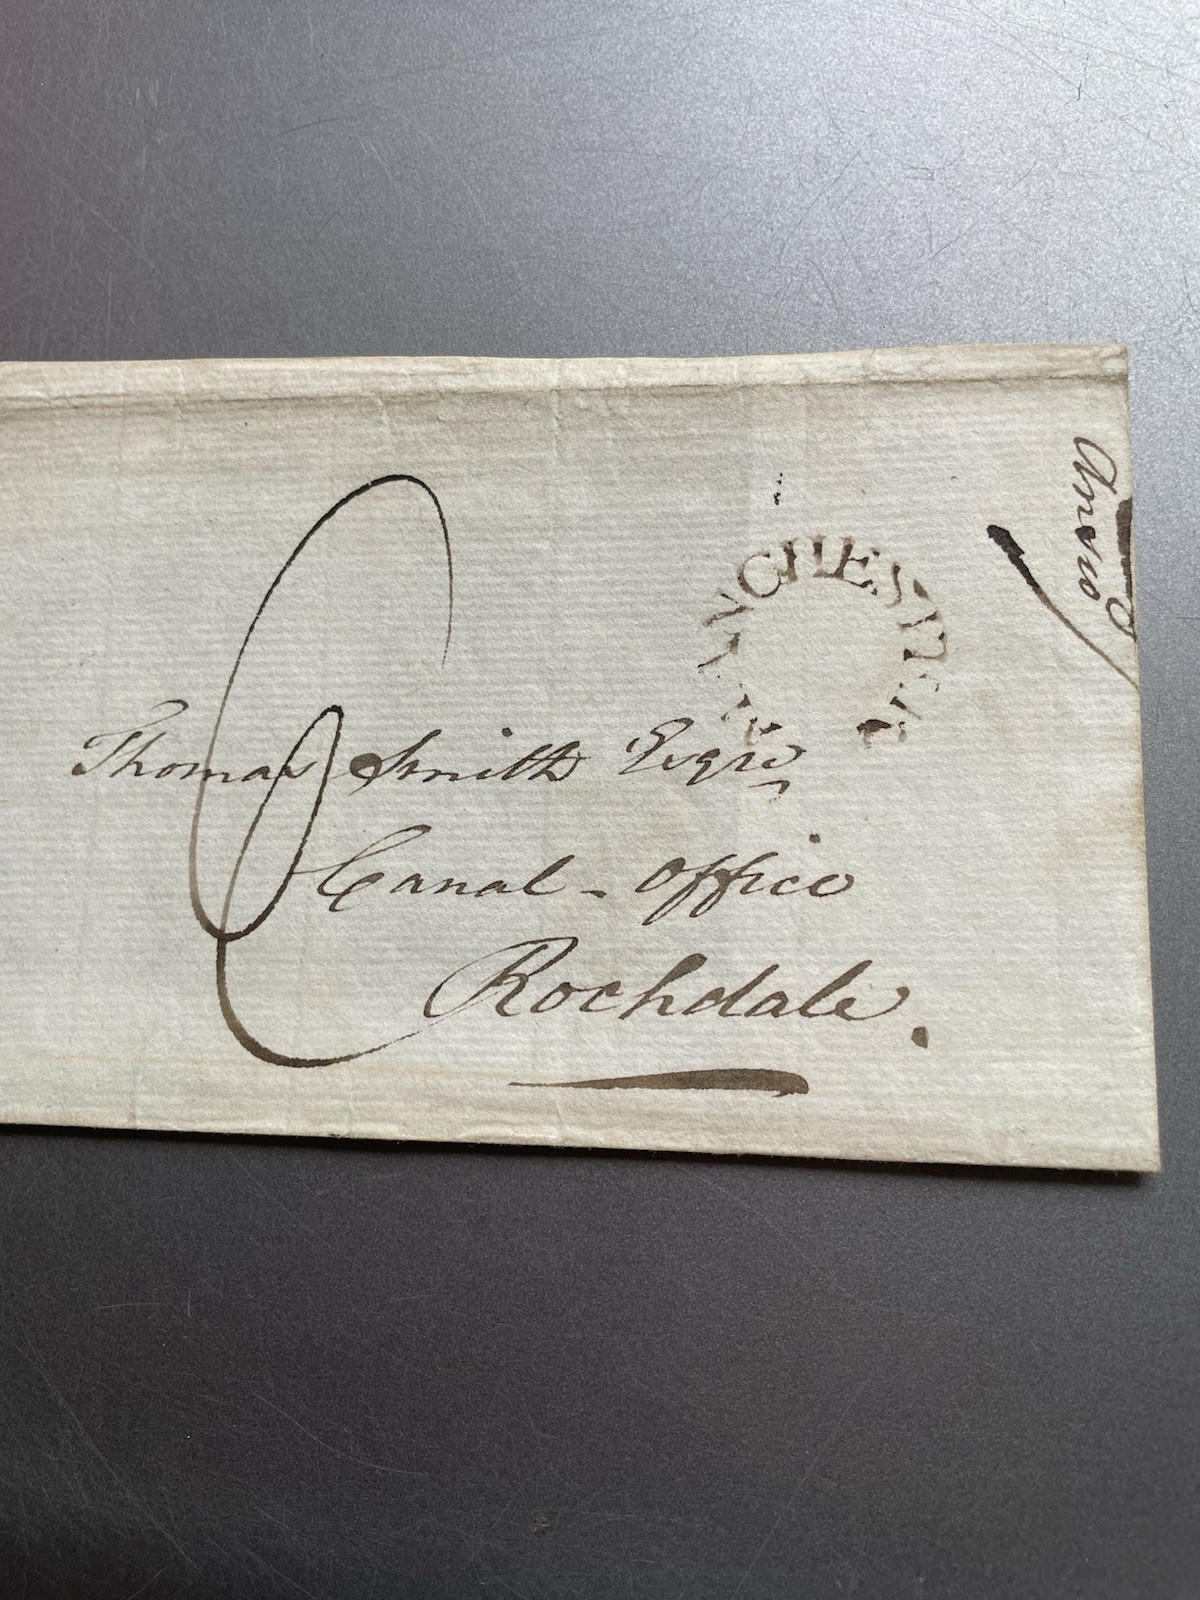 MANCHESTER
Thomas Smith Esqre
Canal - Office
Rochdale.